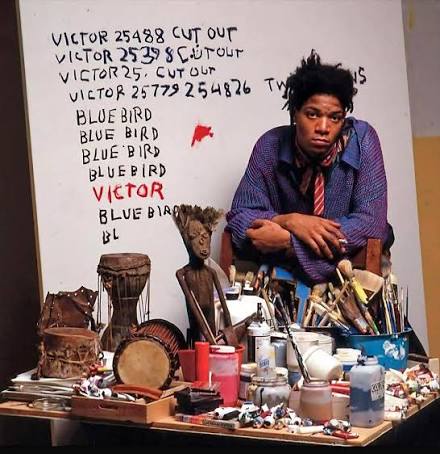 VICTOR 25488 CUT OUT
VICTOR 25398 CUTOUT
VICTOR 25. CUT OUT
VICTOR 25779 254826
BLUE BIRD
BLUE BIRD
BLUE BIRD
BLUEBIRD
VICTOR
BLUE BIRD
BL